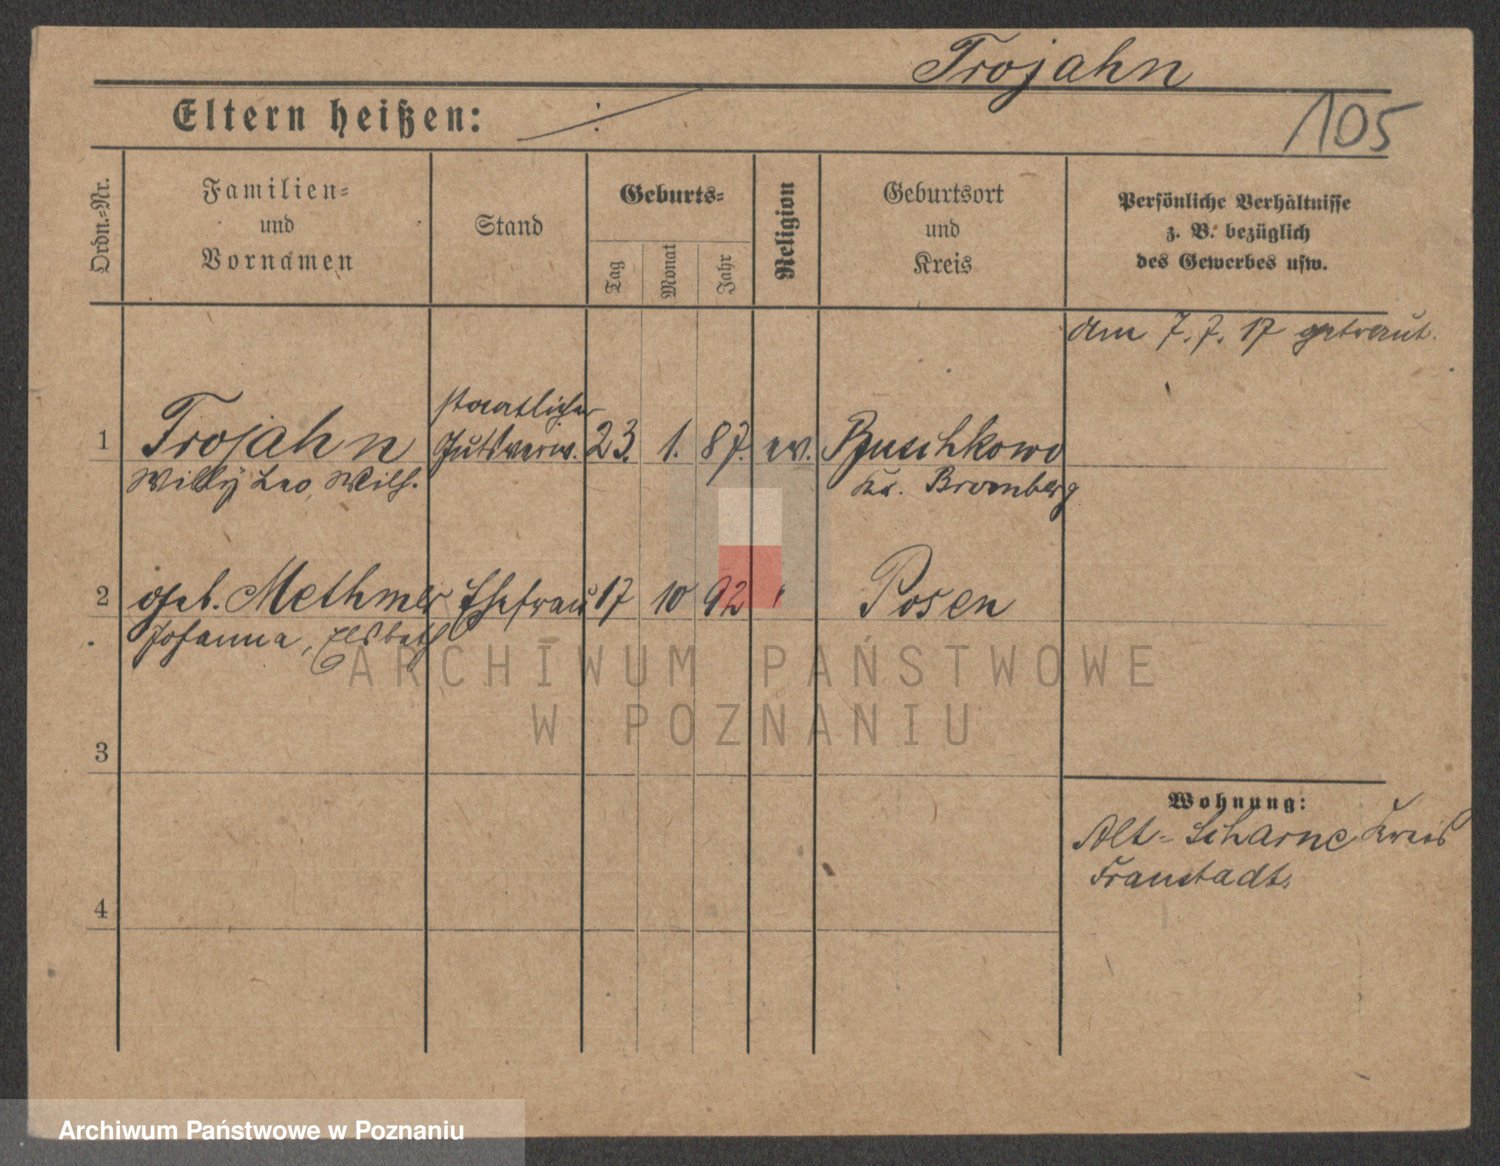 Trojahn
Eltern heißen: ./.
105
Ordn.-Nr.
Familien-
und
Vornamen
Stand
Geburts-
Tag
Monat
Jahr
Religion
Geburtsort
und
Kreis
Persönliche Verhältnisse
z. B. bezüglich
des Gewerbes usw.
am 7. 7. 17 getraut.
staatlicher
1 Trojahn Gutsverw. 23. 1. 87. ev.
Willy Leo, Wilh. Kr. Bromberg
2 geb. Methner Ehefrau 17 10 92 " Posen
Johanna, Elsbeth
3
Wohnung:
Alt-Scharne Kreis
Fraustadt.
4
ARCHIWUM PAŃSTWOWE
W POZNANIU
Archiwum Państwowe w Poznaniu